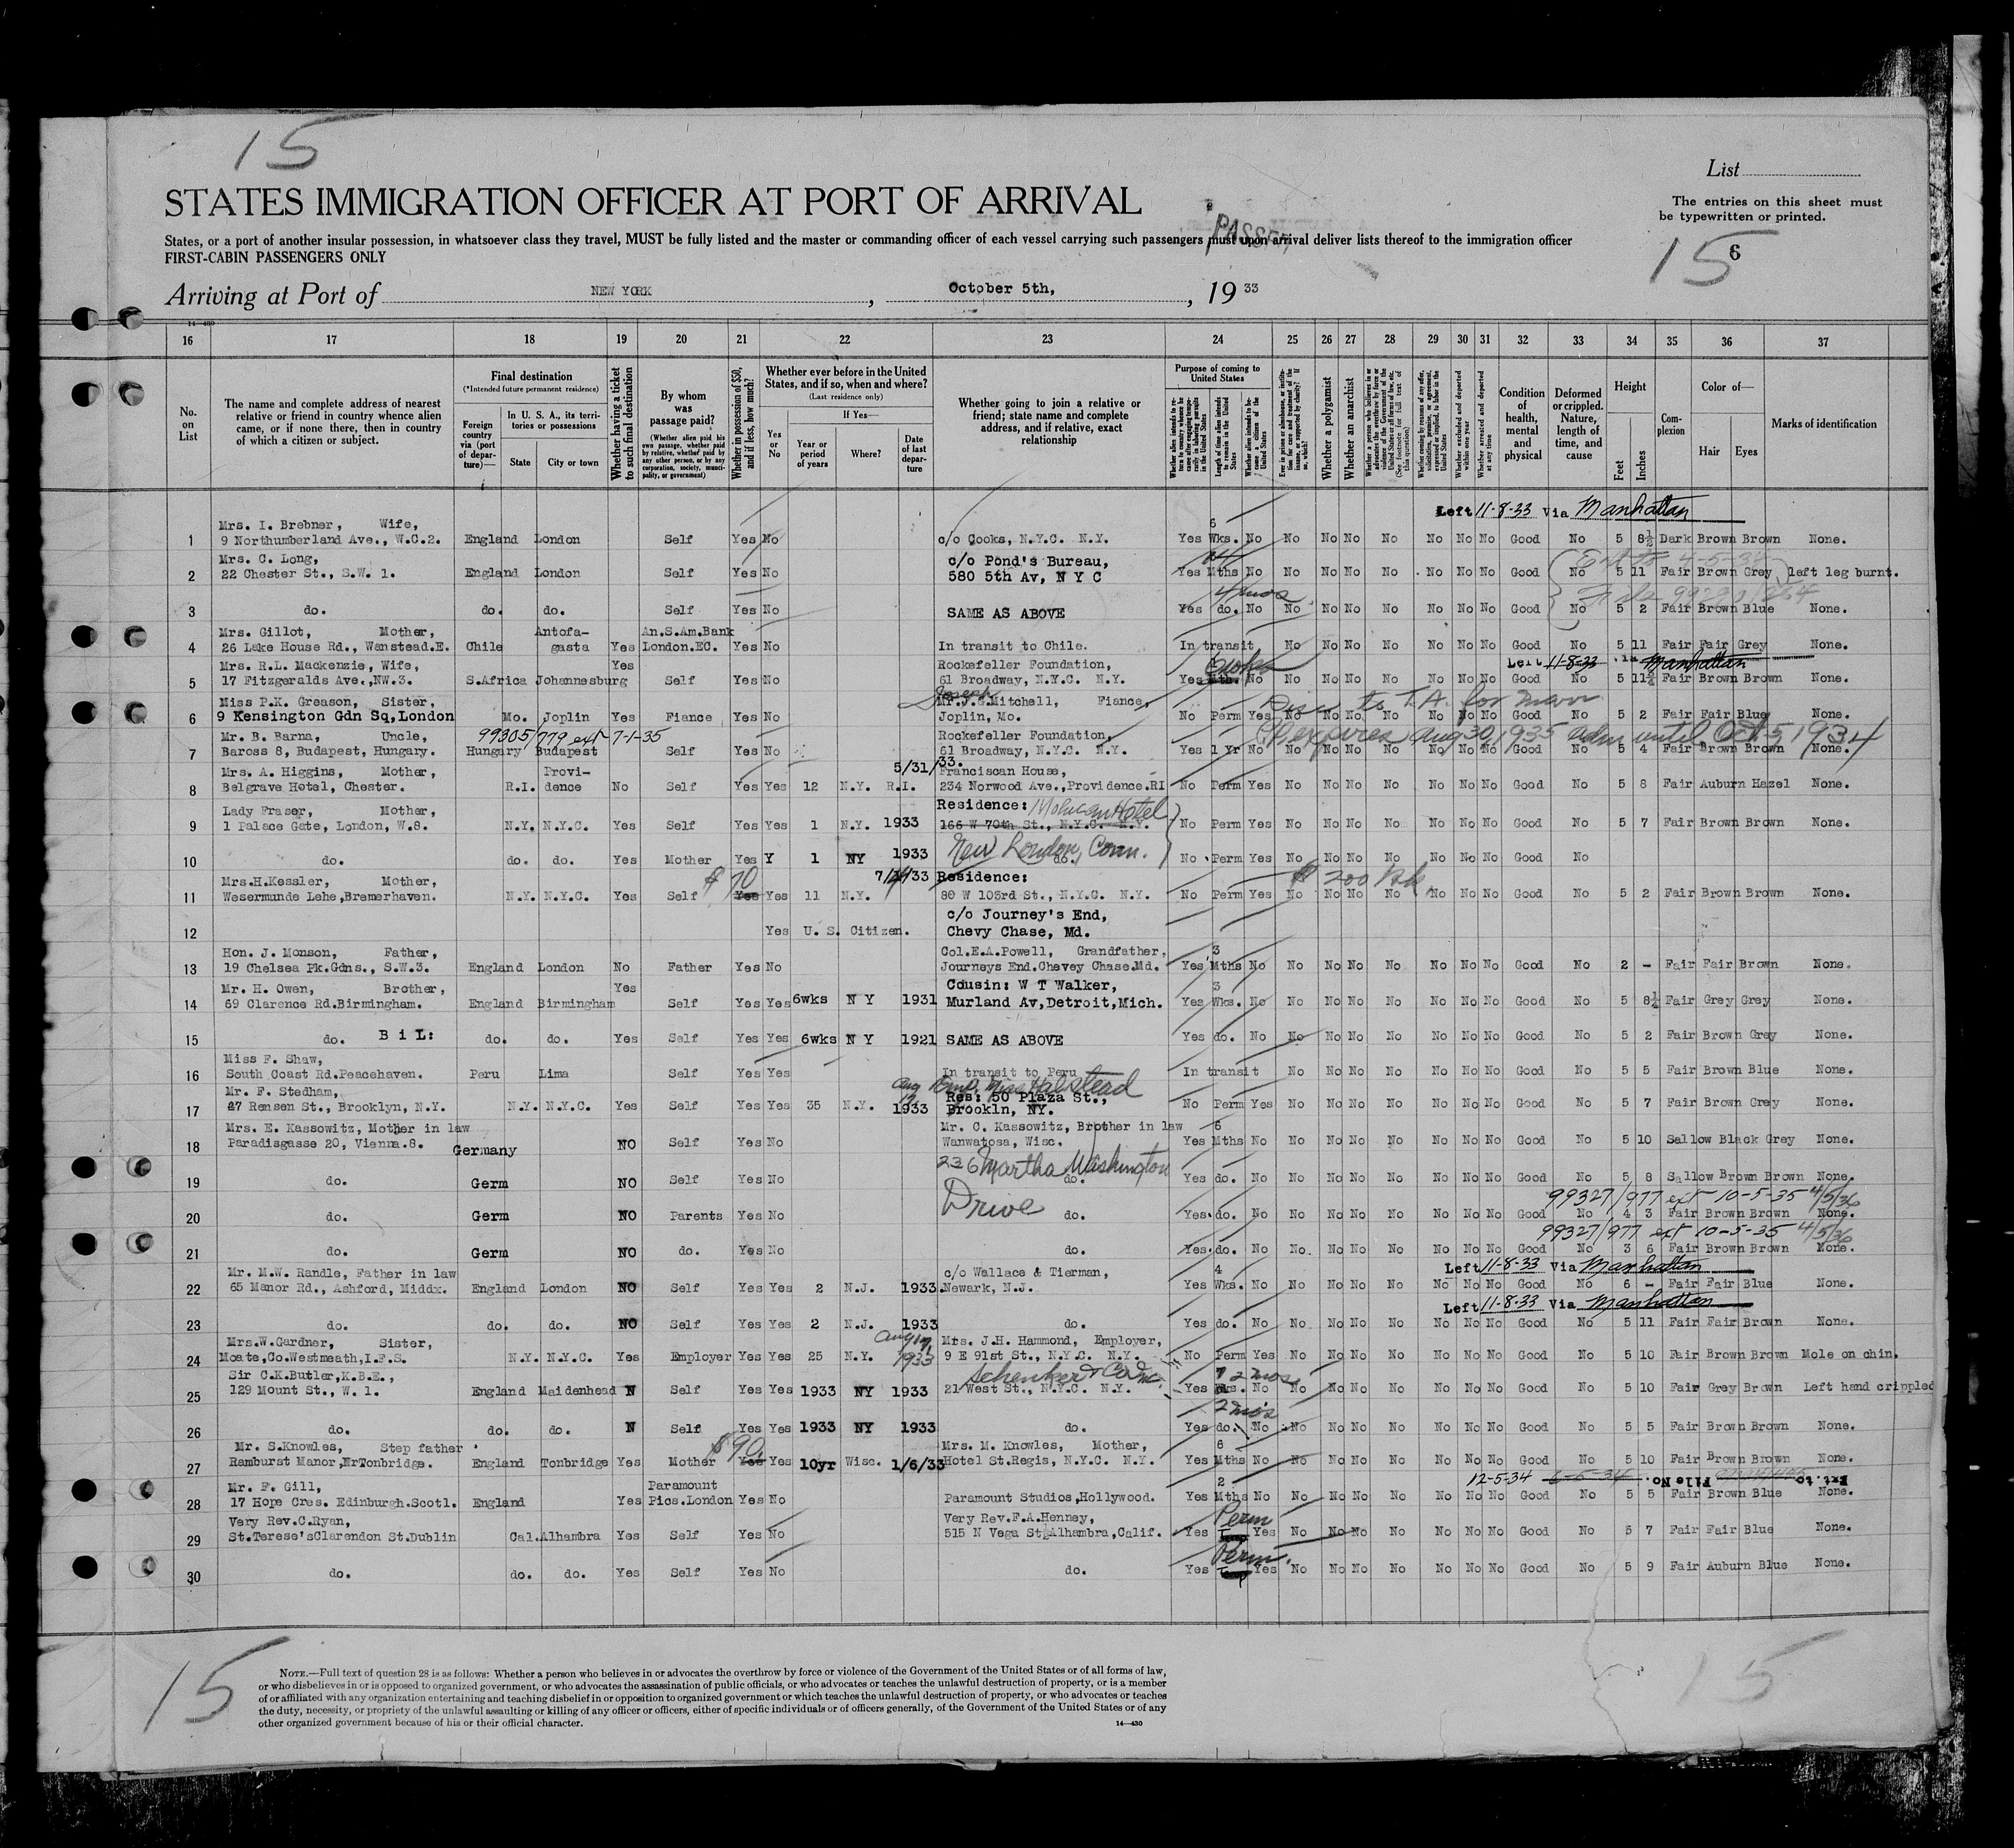 15
List
STATES IMMIGRATION OFFICER AT PORT OF ARRIVAL
The entries on this sheet must
be typewritten or printed.
PASSED
States, or a port of another insular possession, in whatsoever class they travel, MUST be fully listed and the master or commanding officer of each vessel carrying such passengers must upon arrival deliver lists thereof to the immigration officer
FIRST-CABIN PASSENGERS ONLY
15 6
Arriving at Port of NEW YORK, October 5th, 19 33
14—430
16 17 18 19 20 21 22 23 24 25 26 27 28 29 30 31 32 33 34 35 36 37
No. on List
The name and complete address of nearest relative or friend in country whence alien came, or if none there, then in country of which a citizen or subject.
Final destination
(*Intended future permanent residence)
Foreign country via (port of departure)—
In U. S. A., its territories or possessions
State City or town
Whether having a ticket to such final destination
By whom was passage paid?
(Whether alien paid his own passage, whether paid by relative, whether paid by any other person, or by any corporation, society, municipality, or government)
Whether in possession of $50, and if less, how much?
Whether ever before in the United States, and if so, when and where?
(Last residence only)
Yes or No
If Yes—
Year or period of years Where? Date of last departure
Whether going to join a relative or friend; state name and complete address, and if relative, exact relationship
Purpose of coming to United States
Whether alien intends to return to country whence he came after engaging temporarily in laboring pursuits in the United States
Length of time alien intends to remain in the United States
Whether alien intends to become a citizen of the United States
Ever in prison or almshouse, or institution for care and treatment of the insane, or supported by charity? If so, which?
Whether a polygamist
Whether an anarchist
Whether a person who believes in or advocates the overthrow by force or violence of the Government of the United States or of all forms of law, etc. (See footnote for full text of this question)
Whether coming by reason of any offer, solicitation, promise, or agreement, expressed or implied, to labor in the United States
Whether excluded and deported within one year
Whether arrested and deported at any time
Condition of health, mental and physical
Deformed or crippled. Nature, length of time, and cause
Height
Feet Inches
Complexion
Color of—
Hair Eyes
Marks of identification
Left 11-8-33 Via Manhattan
Mrs. I. Brebner, Wife, 6
1 9 Northumberland Ave., W.C.2. England London Self Yes No c/o Cooks, N.Y.C. N.Y. Yes Wks. No No No No No No No No Good No 5 8½ Dark Brown Brown None.
Mrs. C. Long, c/o Pond's Bureau,
2 22 Chester St., S.W. 1. England London Self Yes No 580 5th Av, N Y C Yes Mths No No No No No No No No Good No 5 11 Fair Brown Grey left leg burnt.
4 mos
3 do. do. do. Self Yes No SAME AS ABOVE Yes do. No No No No No No No No Good No 5 2 Fair Brown Blue None.
Mrs. Gillot, Mother, Antofa- An.S.Am.Bank
4 26 Lake House Rd., Wanstead.E. Chile gasta Yes London.EC. Yes No In transit to Chile. In transit No No No No No No No Good No 5 11 Fair Fair Grey None.
Mrs. R.L. Mackenzie, Wife, Yes Rockefeller Foundation, Left 11-8-33 Manhattan
5 17 Fitzgeralds Ave.,NW.3. S.Africa Johannesburg Self Yes No 61 Broadway, N.Y.C. N.Y. Yes Mth. No No No No No No No No Good No 5 11½ Fair Brown Brown None.
Joseph
Miss P.K. Greason, Sister, Mr.J.S.Mitchell, Fiance,
6 9 Kensington Gdn Sq,London Mo. Joplin Yes Fiance Yes No Joplin, Mo. No Perm Yes No No No No No No No Good No 5 2 Fair Fair Blue None.
99305/779 ext 7-1-35
Mr. B. Barna, Uncle, Rockefeller Foundation, expires Aug 30, 1935 adm until Oct 5 1934
7 Baross 8, Budapest, Hungary. Hungary Budapest Self Yes No 61 Broadway, N.Y.C. N.Y. Yes 1 Yr No No No No No No No No Good No 5 4 Fair Brown Brown None.
Mrs. A. Higgins, Mother, Provi- 5/31/33. Franciscan House,
8 Belgrave Hotel, Chester. R.I. dence No Self Yes Yes 12 N.Y. R.I. 234 Norwood Ave.,Providence.RI No Perm Yes No No No No No No No Good No 5 8 Fair Auburn Hazel None.
Lady Fraser, Mother, Residence: Mohican Hotel
9 1 Palace Gate, London, W.8. N.Y. N.Y.C. Yes Self Yes Yes 1 N.Y. 1933 166 W 70th St., N.Y.C. N.Y. No Perm Yes No No No No No No No Good No 5 7 Fair Brown Brown None.
New London, Conn.
10 do. do. do. Yes Mother Yes Y 1 NY 1933 do. No Perm Yes No No No No No No No Good No
Mrs.H.Kessler, Mother, $70 7/ /33 Residence: $200
11 Wesermunde Lehe,Bremerhaven. N.Y. N.Y.C. Yes Self Yes Yes 11 N.Y. 80 W 103rd St., N.Y.C. N.Y. No Perm Yes No No No No No No No Good No 5 2 Fair Brown Brown None.
c/o Journey's End,
12 Yes U. S. Citizen. Chevy Chase, Md.
Hon. J. Monson, Father, Col.E.A.Powell, Grandfather, 3
13 19 Chelsea Pk.Gdns., S.W.3. England London No Father Yes No Journeys End.Chevey Chase.Md. Yes Mths No No No No No No No No Good No 2 - Fair Fair Brown None.
Mr. H. Owen, Brother, Yes Cousin: W T Walker, 3
14 69 Clarence Rd.Birmingham. England Birmingham Self Yes Yes 6wks N Y 1931 Murland Av,Detroit,Mich. Yes Wks. No No No No No No No No Good No 5 8¼ Fair Grey Grey None.
15 do. B i L: do. do. Yes Self Yes Yes 6wks N Y 1921 SAME AS ABOVE Yes do. No No No No No No No No Good No 5 2 Fair Brown Grey None.
Miss F. Shaw,
16 South Coast Rd.Peacehaven. Peru Lima Self Yes Yes In transit to Peru In transit No No No No No No No Good No 5 5 Fair Brown Blue None.
Mr. F. Stedham, Aug Emp. Miss Halstead
Res: 50 Plaza St.,
17 47 Remsen St., Brooklyn, N.Y. N.Y. N.Y.C. Yes Self Yes Yes 35 N.Y. 1933 Brookln, NY. No Perm Yes No No No No No No No Good No 5 7 Fair Brown Grey None.
Mrs. E. Kassowitz, Mother in law Mr. C. Kassowitz, Brother in law 6
18 Paradisgasse 20, Vienna.8. Germany NO Self Yes No Wanwatosa, Wisc. Yes Mths No No No No No No No No Good No 5 10 Sallow Black Grey None.
236 Martha Washington
19 do. Germ NO Self Yes No do. Yes do. No No No No No No No No Good No 5 8 Sallow Brown Brown None.
Drive 99327/977 ext 10-5-35 4/5/36
20 do. Germ NO Parents Yes No do. Yes do. No No No No No No No No Good No 4 3 Fair Brown Brown None.
99327/977 ext 10-5-35 4/5/36
21 do. Germ NO do. Yes No do. Yes do. No No. No No No No No No Good No 3 6 Fair Brown Brown None.
Mr. M.W. Randle, Father in law c/o Wallace & Tierman, 4 Left 11-8-33 Via Manhattan
22 65 Manor Rd., Ashford, Middx. England London NO Self Yes Yes 2 N.J. 1933. Newark, N.J. Yes Wks. No No No No No No No No Good No 6 - Fair Fair Blue None.
Left 11-8-33 Via Manhattan
23 do. do. do. NO Self Yes Yes 2 N.J. 1933 do. Yes do. No No. No No No No No No Good No 5 11 Fair Fair Brown None.
Mrs.W.Gardner, Sister, Aug 17, Mrs. J.H. Hammond, Employer,
24 Moate,Co.Westmeath,I.F.S. N.Y. N.Y.C. Yes Employer Yes Yes 25 N.Y. 1933 9 E 91st St., N.Y.C. N.Y. No Perm Yes No No No No No No No Good No 5 10 Fair Brown Brown Mole on chin.
Sir C.K.Butler,K.B.E., Schenker & Co Inc. 2 mos
25 129 Mount St., W. 1. England Maidenhead N Self Yes Yes 1933 NY 1933 21 West St., N.Y.C. N.Y. Yes Wks. No No No No No No No No Good No 5 10 Fair Grey Brown Left hand crippled
2 mos
26 do. do. do. N Self Yes Yes 1933 NY 1933 do. Yes do. No No No No No No No No Good No 5 5 Fair Brown Brown None.
Mr. S.Knowles, Step father $90. Mrs. M. Knowles, Mother, 6
27 Ramburst Manor,NrTonbridge. England Tonbridge Yes Mother Yes Yes 10yr Wisc. 1/6/33 Hotel St.Regis, N.Y.C. N.Y. Yes Mths No No No No No No No No Good No 5 10 Fair Brown Brown None.
Mr. F. Gill, Paramount 2 12-5-34 6-5-34 File No. Ext. to
28 17 Hope Cres. Edinburgh.Scotl. England Yes Pics.London Yes No Paramount Studios,Hollywood. Yes Mths No No No No No No No No Good No 5 5 Fair Brown Blue None.
Very Rev.C.Ryan, Very Rev.F.A.Henney, Perm
29 St.Terese'sClarendon St.Dublin Cal.Alhambra Yes Self Yes No 515 N Vega St,Alhambra,Calif. Yes Temp Yes No No No No No No No Good No 5 7 Fair Fair Blue None.
Perm.
30 do. do. do. Yes Self Yes No do. Yes Temp Yes No No No No No No No Good No 5 9 Fair Auburn Blue None.
15
15
NOTE.—Full text of question 28 is as follows: Whether a person who believes in or advocates the overthrow by force or violence of the Government of the United States or of all forms of law,
or who disbelieves in or is opposed to organized government, or who advocates the assassination of public officials, or who advocates or teaches the unlawful destruction of property, or is a member
of or affiliated with any organization entertaining and teaching disbelief in or opposition to organized government or which teaches the unlawful destruction of property, or who advocates or teaches
the duty, necessity, or propriety of the unlawful assaulting or killing of any officer or officers, either of specific individuals or of officers generally, of the Government of the United States or of any
other organized government because of his or their official character.
14—430